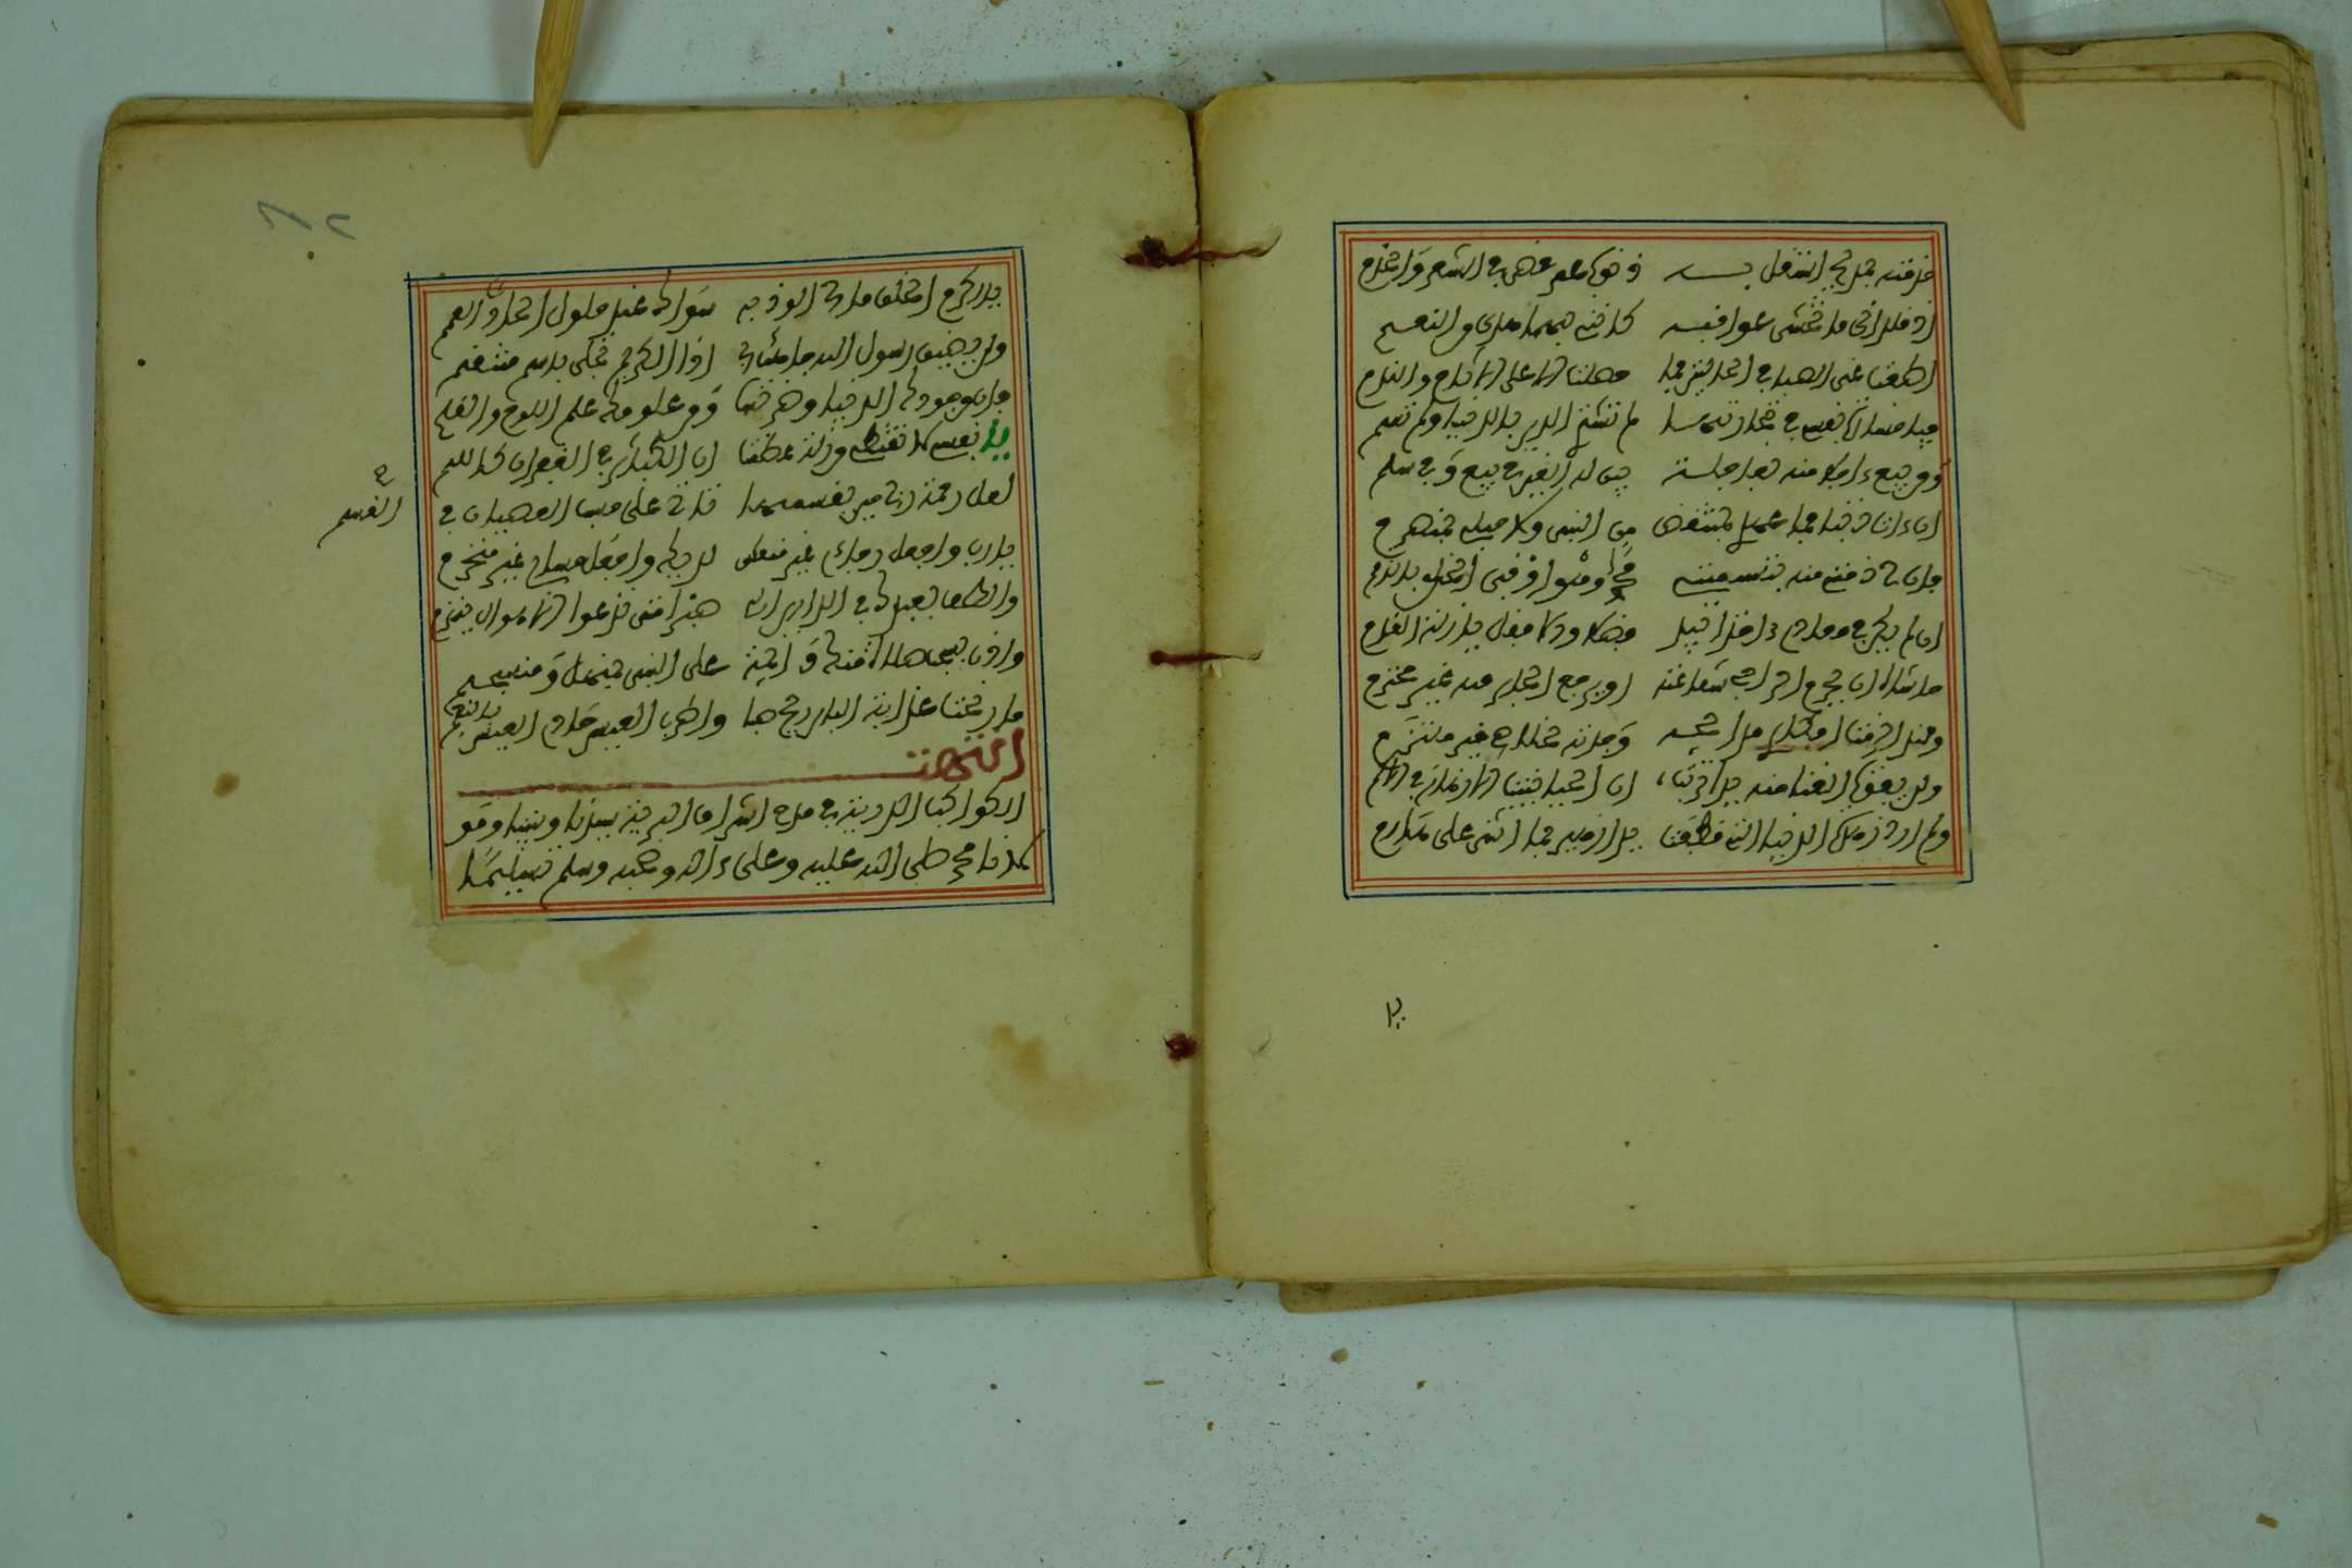 خدمته بمديح استقيل به ذنوب عمر مضى في الشعر والخدم
إذ قلداني ما تخشى عواقبه كانني بهما هدي من النعم
أطعت غي الصبا في الحالتين وما حصلت الا على الاثام والندم
فيا خسارة نفس في تجارتها لم تشتر الدين بالدنيا ولم تسم
ومن يبع ءاجلا منه بعاجله يبن له الغبن في بيع وفي سلم
ان ءات ذنبا فما عهدي بمنتقض من النبي ولا حبلي بمنصرم
فان لي ذمة منه بتسميتي محمدا وهو اوفى الخلق بالذمم
ان لم يكن في معادي ءاخذا بيدي فضلا والا فقل يا زلة القدم
حاشاه ان يحرم الراجي شفاعته او يرجع الجار منه غير محترم
ومنذ الزمت افكاري مدائحه وجدته لخلاصي خير ملتزم
ولن يفوت الغنا منه يدا تربت ان الحيا ينبت الازهار في الاكم
ولم ارد زهرة الدنيا التي اقتطفت يدا زهير بما اثنى على هرم
يا
يا اكرم الخلق ما لي من الوذ به سواك عند حلول الحادث العمم
ولن يضيق رسول الله جاهك بي اذا الكريم تجلى باسم منتقم
فان من جودك الدنيا وضرتها ومن علومك علم اللوح والقلم
يا نفس لا تقنطي من زلة عظمت ان الكبائر في الغفران كاللمم
لعل رحمة ربي حين يقسمها تاتي على حسب العصيان في
القسم
يا رب واجعل رجاءي غير منعكس لديك واجعل حسابي غير منخرم
والطف بعبدك في الدارين ان له صبرا متى تدعه الاهوال ينهزم
واذن لسحب صلاة منك دائمة على النبي بمنهل ومنسجم
ما رنحت عذبات البان ريح صبا واطرب العيس حادي العيس
بالنغم
انتهت
الكواكب الدرية في مدح اشرف البرية سيدنا ونبينا ومو
لانا محمد صلى الله عليه وعلى ءاله وصحبه وسلم تسليما